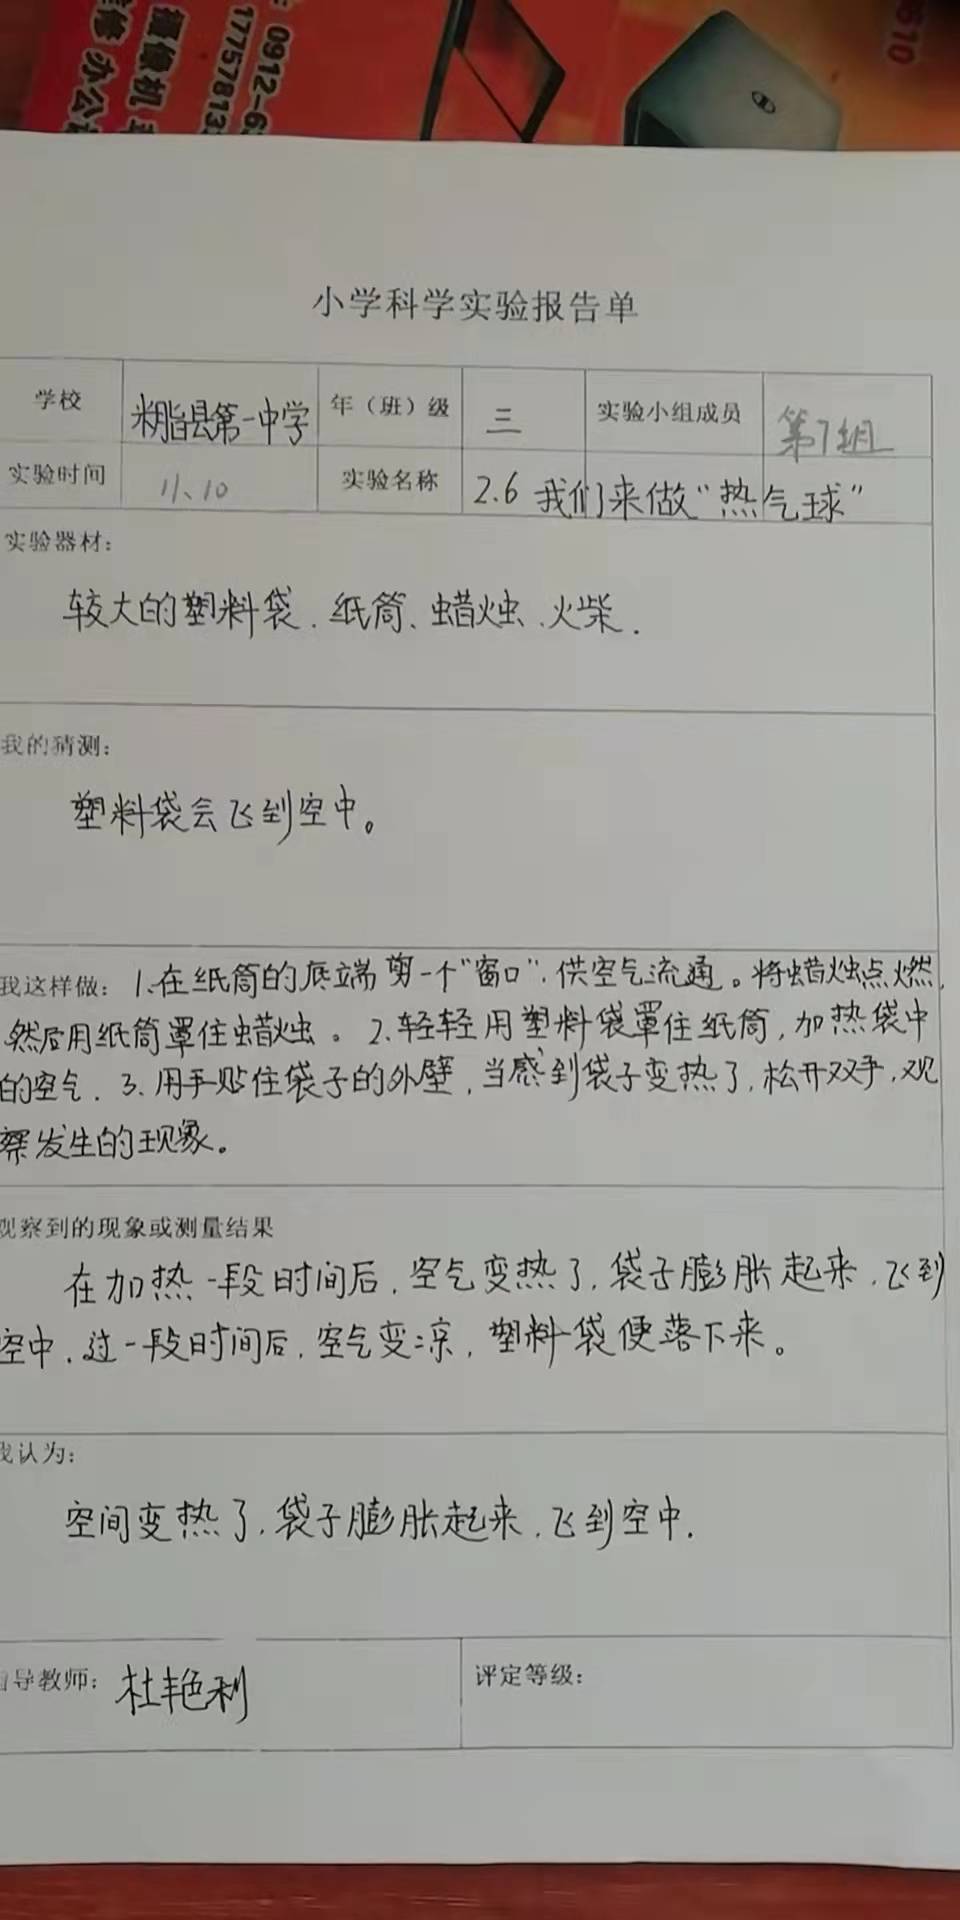 0912-6
17757813
摄像机
修办公
610
小学科学实验报告单
学校 米脂县第一中学 年（班）级 三 实验小组成员 第7组
实验时间 11、10 实验名称 2.6 我们来做“热气球”
实验器材：
较大的塑料袋、纸筒、蜡烛、火柴.
我的猜测：
塑料袋会飞到空中。
我这样做：1、在纸筒的底端剪一个“窗口”，供空气流通。将蜡烛点燃，
然后用纸筒罩住蜡烛。2.轻轻用塑料袋罩住纸筒，加热袋中
的空气．3.用手贴住袋子的外壁，当感到袋子变热了，松开双手，观
察发生的现象。
观察到的现象或测量结果
在加热一段时间后，空气变热了，袋子膨胀起来，飞到
空中，过一段时间后，空气变凉，塑料袋便落下来。
我认为：
空间变热了，袋子膨胀起来，飞到空中.
指导教师：杜艳利 评定等级：